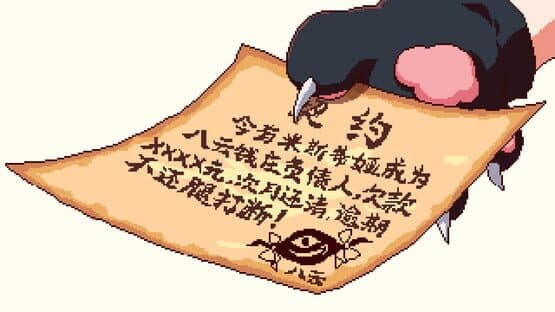 契约
今有米斯蒂娅成为
八云钱庄负债人,欠款
XXXX元,次月还清,逾期
不还腿打断!
八云